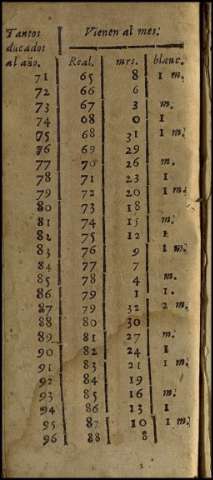 Tantos ducados al año. Vienen al mes:
Real. mrs. blanc.
71 65 8 1 m.
72 66 6
73 67 3 m.
74 68 0 1
75 68 31 1 m.
76 69 29
77 70 26 m.
78 71 23 1
79 72 20 1 m.
80 73 18
81 74 15 m.
82 75 12 1.
83 76 9 1 m.
84 77 7
85 78 4 m.
86 79 1 1.
87 79 32 2 m.
88 80 30
89 81 27 m.
90 82 24 1
91 83 21 1 m.
92 84 19
93 85 16 m.
94 86 13 1
95 87 10 1 m.
96 88 8